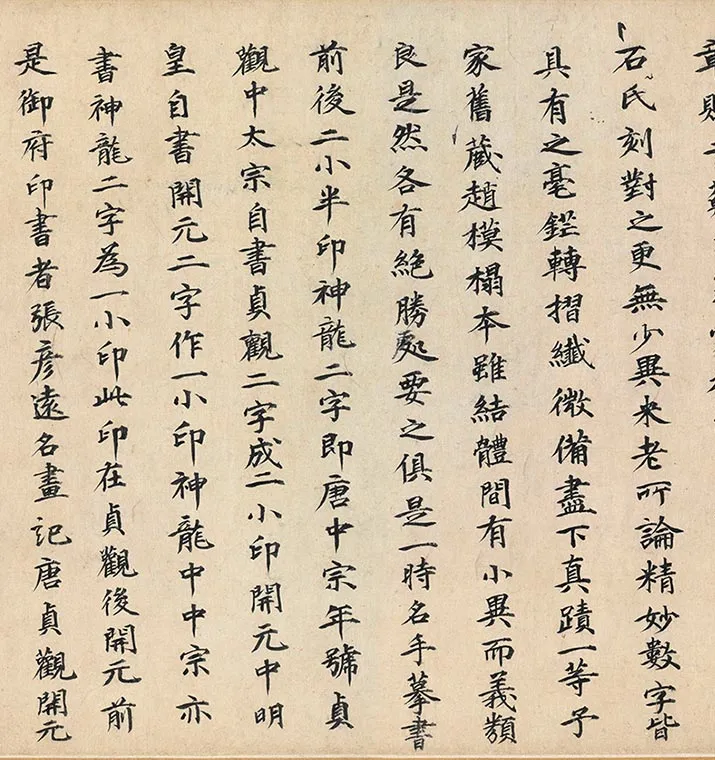 石氏刻對之更無少異米老所論精妙數字皆
具有之毫鋩轉摺纖微備盡下真蹟一等予
家舊藏趙模榻本雖結體間有小異而義類
良是然各有絶勝處要之俱是一時名手摹書
前後二小半印神龍二字即唐中宗年號貞
觀中太宗自書貞觀二字成二小印開元中明
皇自書開元二字作一小印神龍中中宗亦
書神龍二字為一小印此印在貞觀後開元前
是御府印書者張彦遠名畫記唐貞觀開元